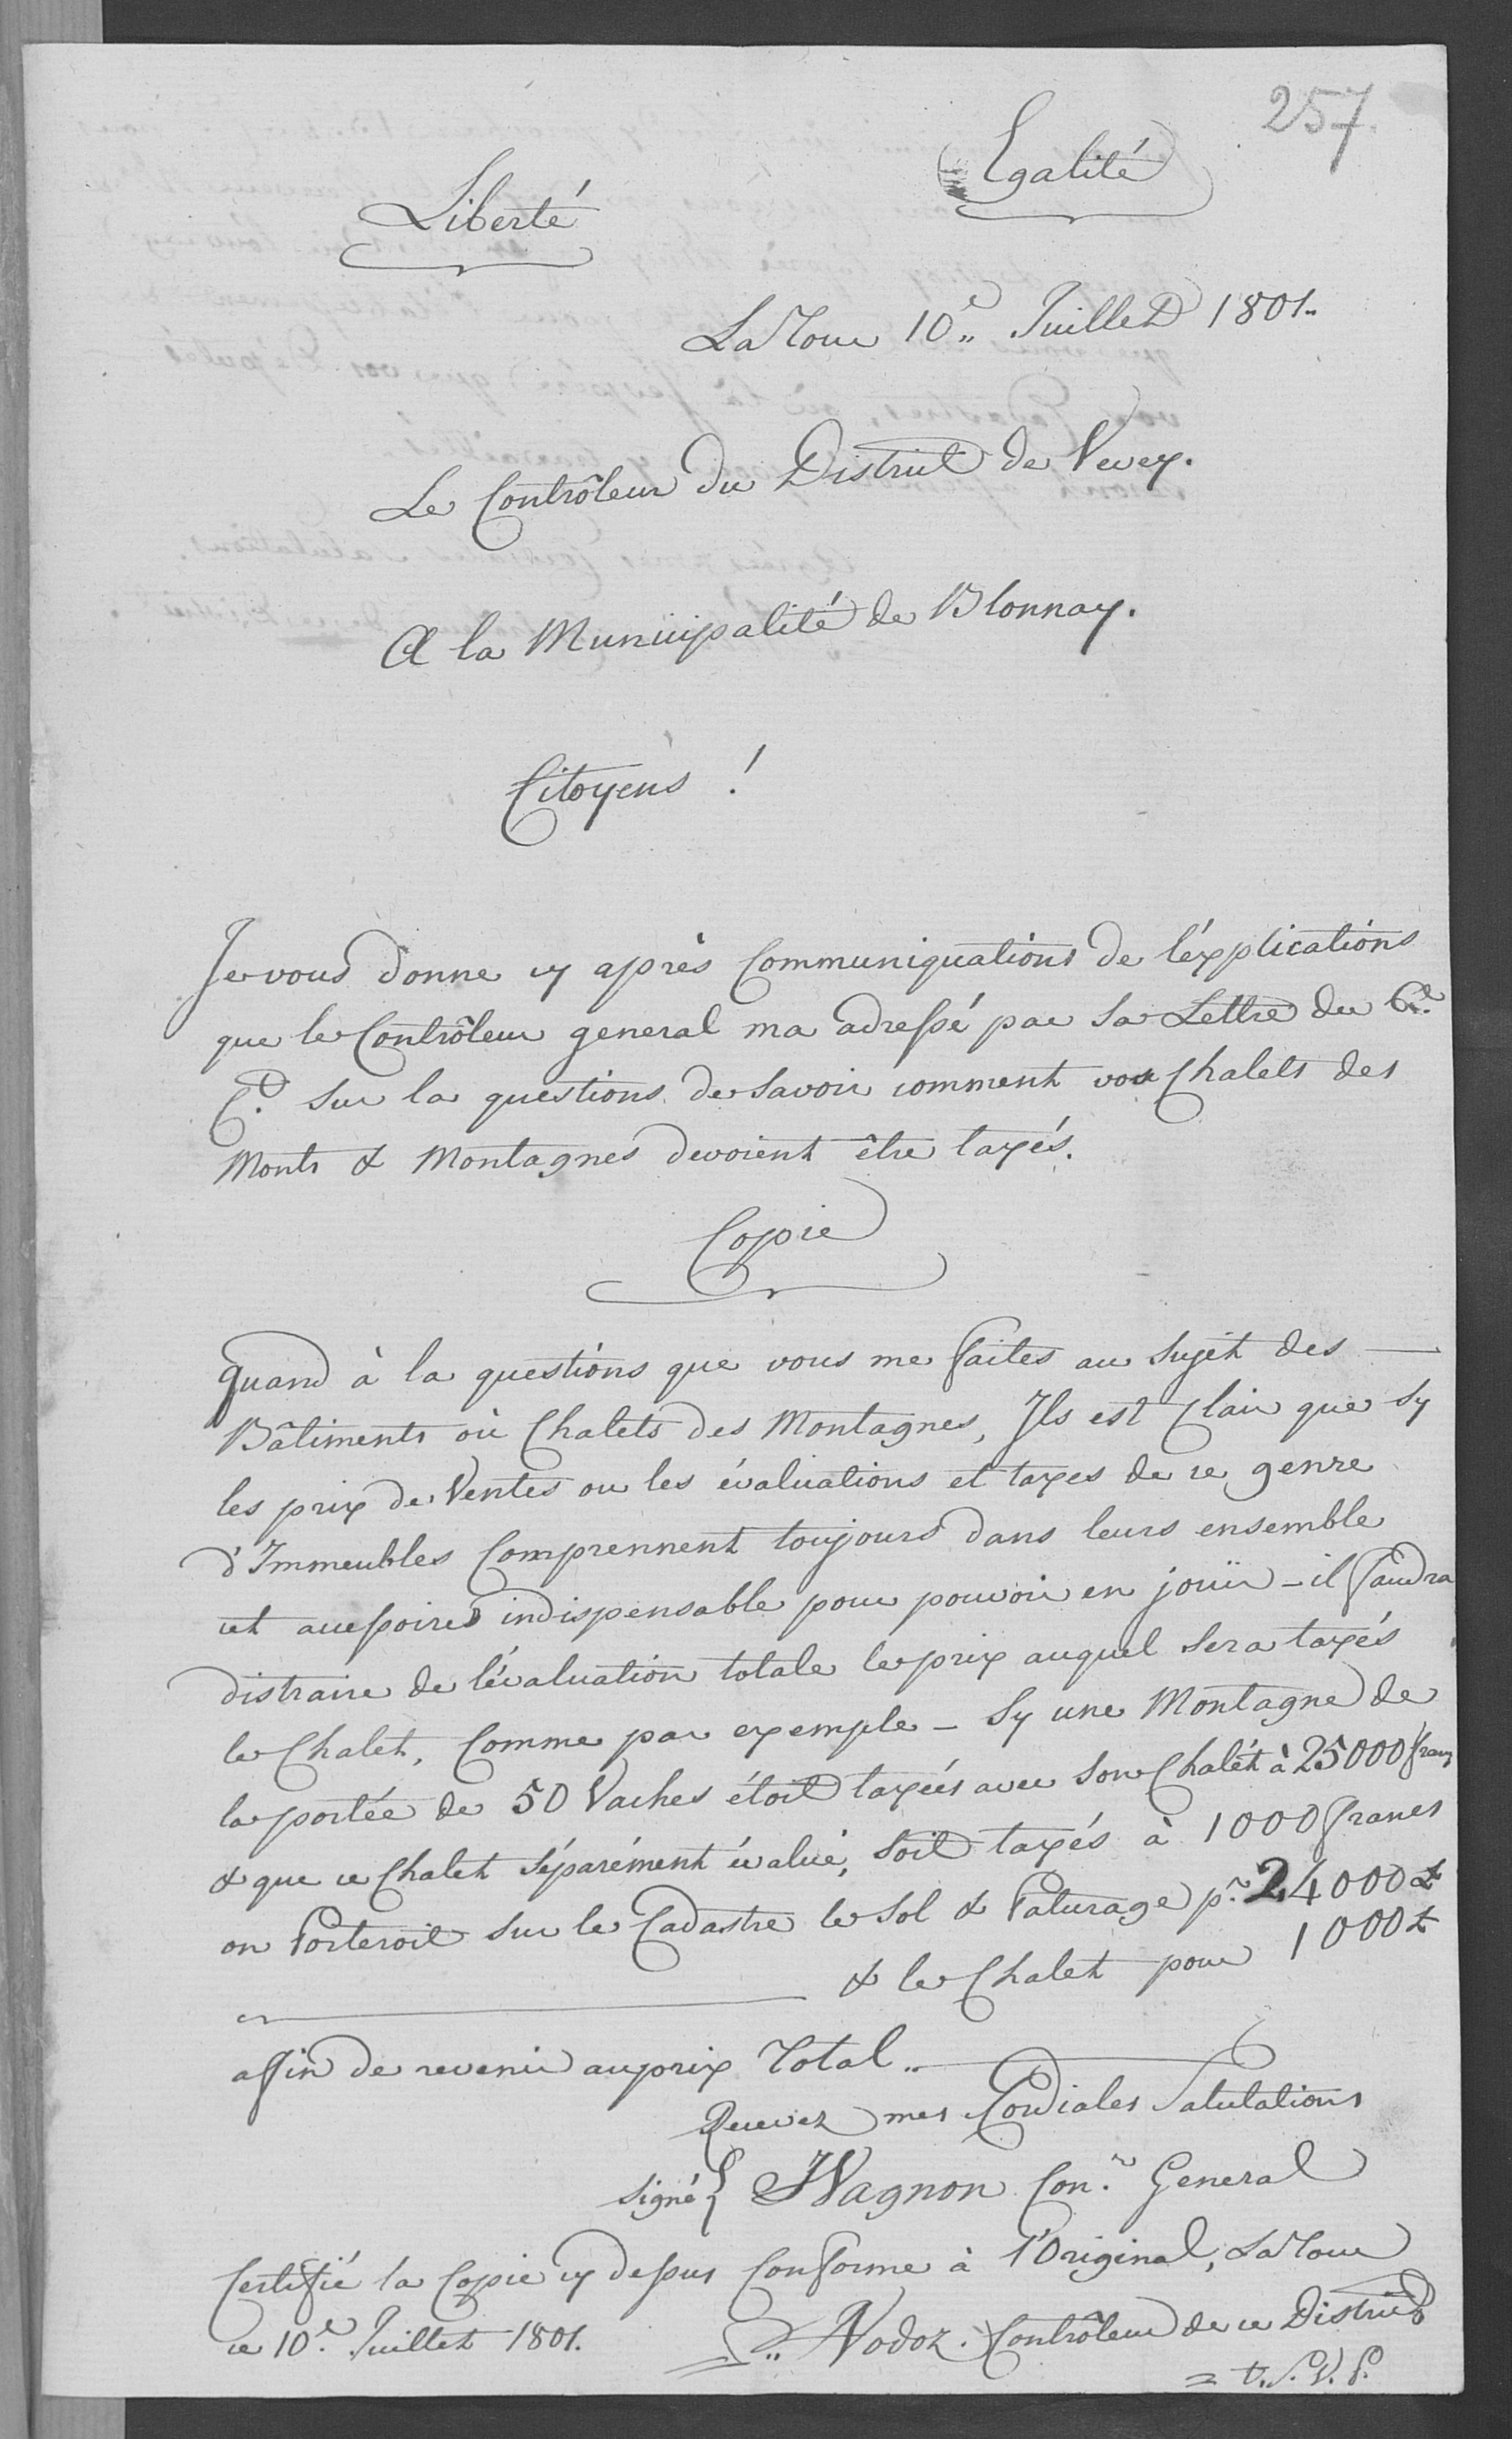 257.
Liberté
Egalité
La Tour 10.e Juillet 1801.
Le Contrôleur du District de Vevey.
A la Municipalité de Blonnay.
Citoyens !
Je vous donne cy après Communiquations de l'éxplications
que le Contrôleur general ma adressé par sa Lettre du 6.e
C.t sur la questions de savoir comment vos Chalets des
Monts & Montagnes devoient être taxés.
Copie
Quand à la questions que vous me faites au sujèt des —
Bâtiments où Chalets des Montagnes, Ils est Clair que sy
les prix de Ventes ou les évaluations et taxes de ce genre
d'Immeubles Comprennent toujours dans leurs ensemble
cet accessoire indispensable pour pouvoir en jouïr - il faudra
distraire de l'évaluation totale le prix auquel sera taxés
le Chalet, Comme par exemple - Sy une Montagne de
la portée de 50 Vaches étoit taxées avec son Chalét à 25000 francs
& que ce Chalet séparément évalué, soit taxés à 1000 francs
on Porteroit sur le Cadastre le sol & Paturage p.r 24000 £
& le Chalet pour 1000 £
affin de revenir au prix Total..
Recevez mes Cordiales Salutations
signé} Wagnon Con.r General
Certifié la Copie cy dessus Conforme à l'Original, La Tour
ce 10.e Juillet 1801.
Nodoz. Contrôleur de ce District
= t. S. V. P.